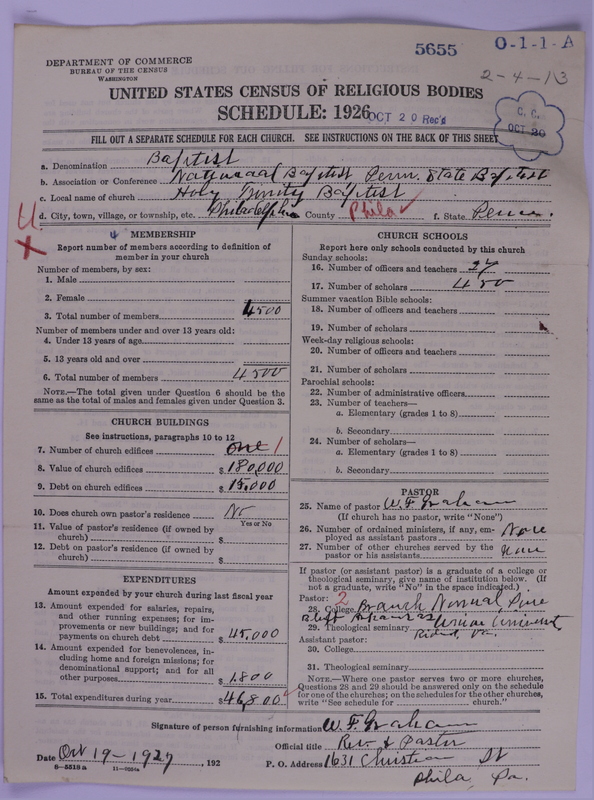 5655 O-1-1-A
DEPARTMENT OF COMMERCE
BUREAU OF THE CENSUS
WASHINGTON
2-4-13
UNITED STATES CENSUS OF RELIGIOUS BODIES
SCHEDULE: 1926
OCT 20 Rec'd
C. C.
OCT 20
FILL OUT A SEPARATE SCHEDULE FOR EACH CHURCH. SEE INSTRUCTIONS ON THE BACK OF THIS SHEET
a. Denomination Baptist
b. Association or Conference National Baptist Penn. State Baptist
c. Local name of church Holy Trinity Baptist
d. City, town, village, or township, etc. Philadelphia County Phila f. State Penna.
U
X
MEMBERSHIP
Report number of members according to definition of member in your church
Number of members, by sex:
1. Male
2. Female
3. Total number of members 4500
Number of members under and over 13 years old:
4. Under 13 years of age
5. 13 years old and over
6. Total number of members 4500
NOTE.—The total given under Question 6 should be the same as the total of males and females given under Question 3.
CHURCH BUILDINGS
See instructions, paragraphs 10 to 12
7. Number of church edifices one 1
8. Value of church edifices $ 180,000
9. Debt on church edifices $ 15,000
10. Does church own pastor's residence? No
Yes or No
11. Value of pastor's residence (if owned by
church) $
12. Debt on pastor's residence (if owned by
church) $
EXPENDITURES
Amount expended by your church during last fiscal year
13. Amount expended for salaries, repairs,
and other running expenses; for im-
provements or new buildings; and for
payments on church debt $ 45,000
14. Amount expended for benevolences, in-
cluding home and foreign missions; for
denominational support; and for all
other purposes $ 1,800
15. Total expenditures during year $ 46,800
CHURCH SCHOOLS
Report here only schools conducted by this church
Sunday schools:
16. Number of officers and teachers 27
17. Number of scholars 450
Summer vacation Bible schools:
18. Number of officers and teachers
19. Number of scholars
Week-day religious schools:
20. Number of officers and teachers
21. Number of scholars
Parochial schools:
22. Number of administrative officers
23. Number of teachers—
a. Elementary (grades 1 to 8)
b. Secondary
24. Number of scholars—
a. Elementary (grades 1 to 8)
b. Secondary
PASTOR
25. Name of pastor W. F. Graham
(If church has no pastor, write "None")
26. Number of ordained ministers, if any, em-
ployed as assistant pastors None
27. Number of other churches served by the
pastor or his assistants None
If pastor (or assistant pastor) is a graduate of a college or
theological seminary, give name of institution below. (If
not a graduate, write "No" in the space indicated.)
Pastor: 2
28. College Branch Normal Pine
Bluff Arkansas
29. Theological seminary Union University
Richmd, Va.
Assistant pastor:
30. College
31. Theological seminary
NOTE.—Where one pastor serves two or more churches,
Questions 28 and 29 should be answered only on the schedule
for one of the churches; on the schedules for the other churches,
write "See schedule for church."
Signature of person furnishing information W. F. Graham
Official title Rev. & Pastor
Date Oct 19-1927, 192
P. O. Address 1631 Christian St
Phila, Pa.
8-5518a 11-9084a